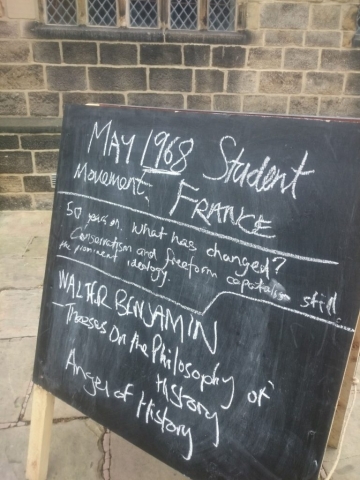 MAY 1968 Student
Movement. FRANCE
50 years on. What has changed?
Conservatism and freeform capitalism still
the prominent ideology.
WALTER BENJAMIN
Theses On the Philosophy of
History
Angel of History